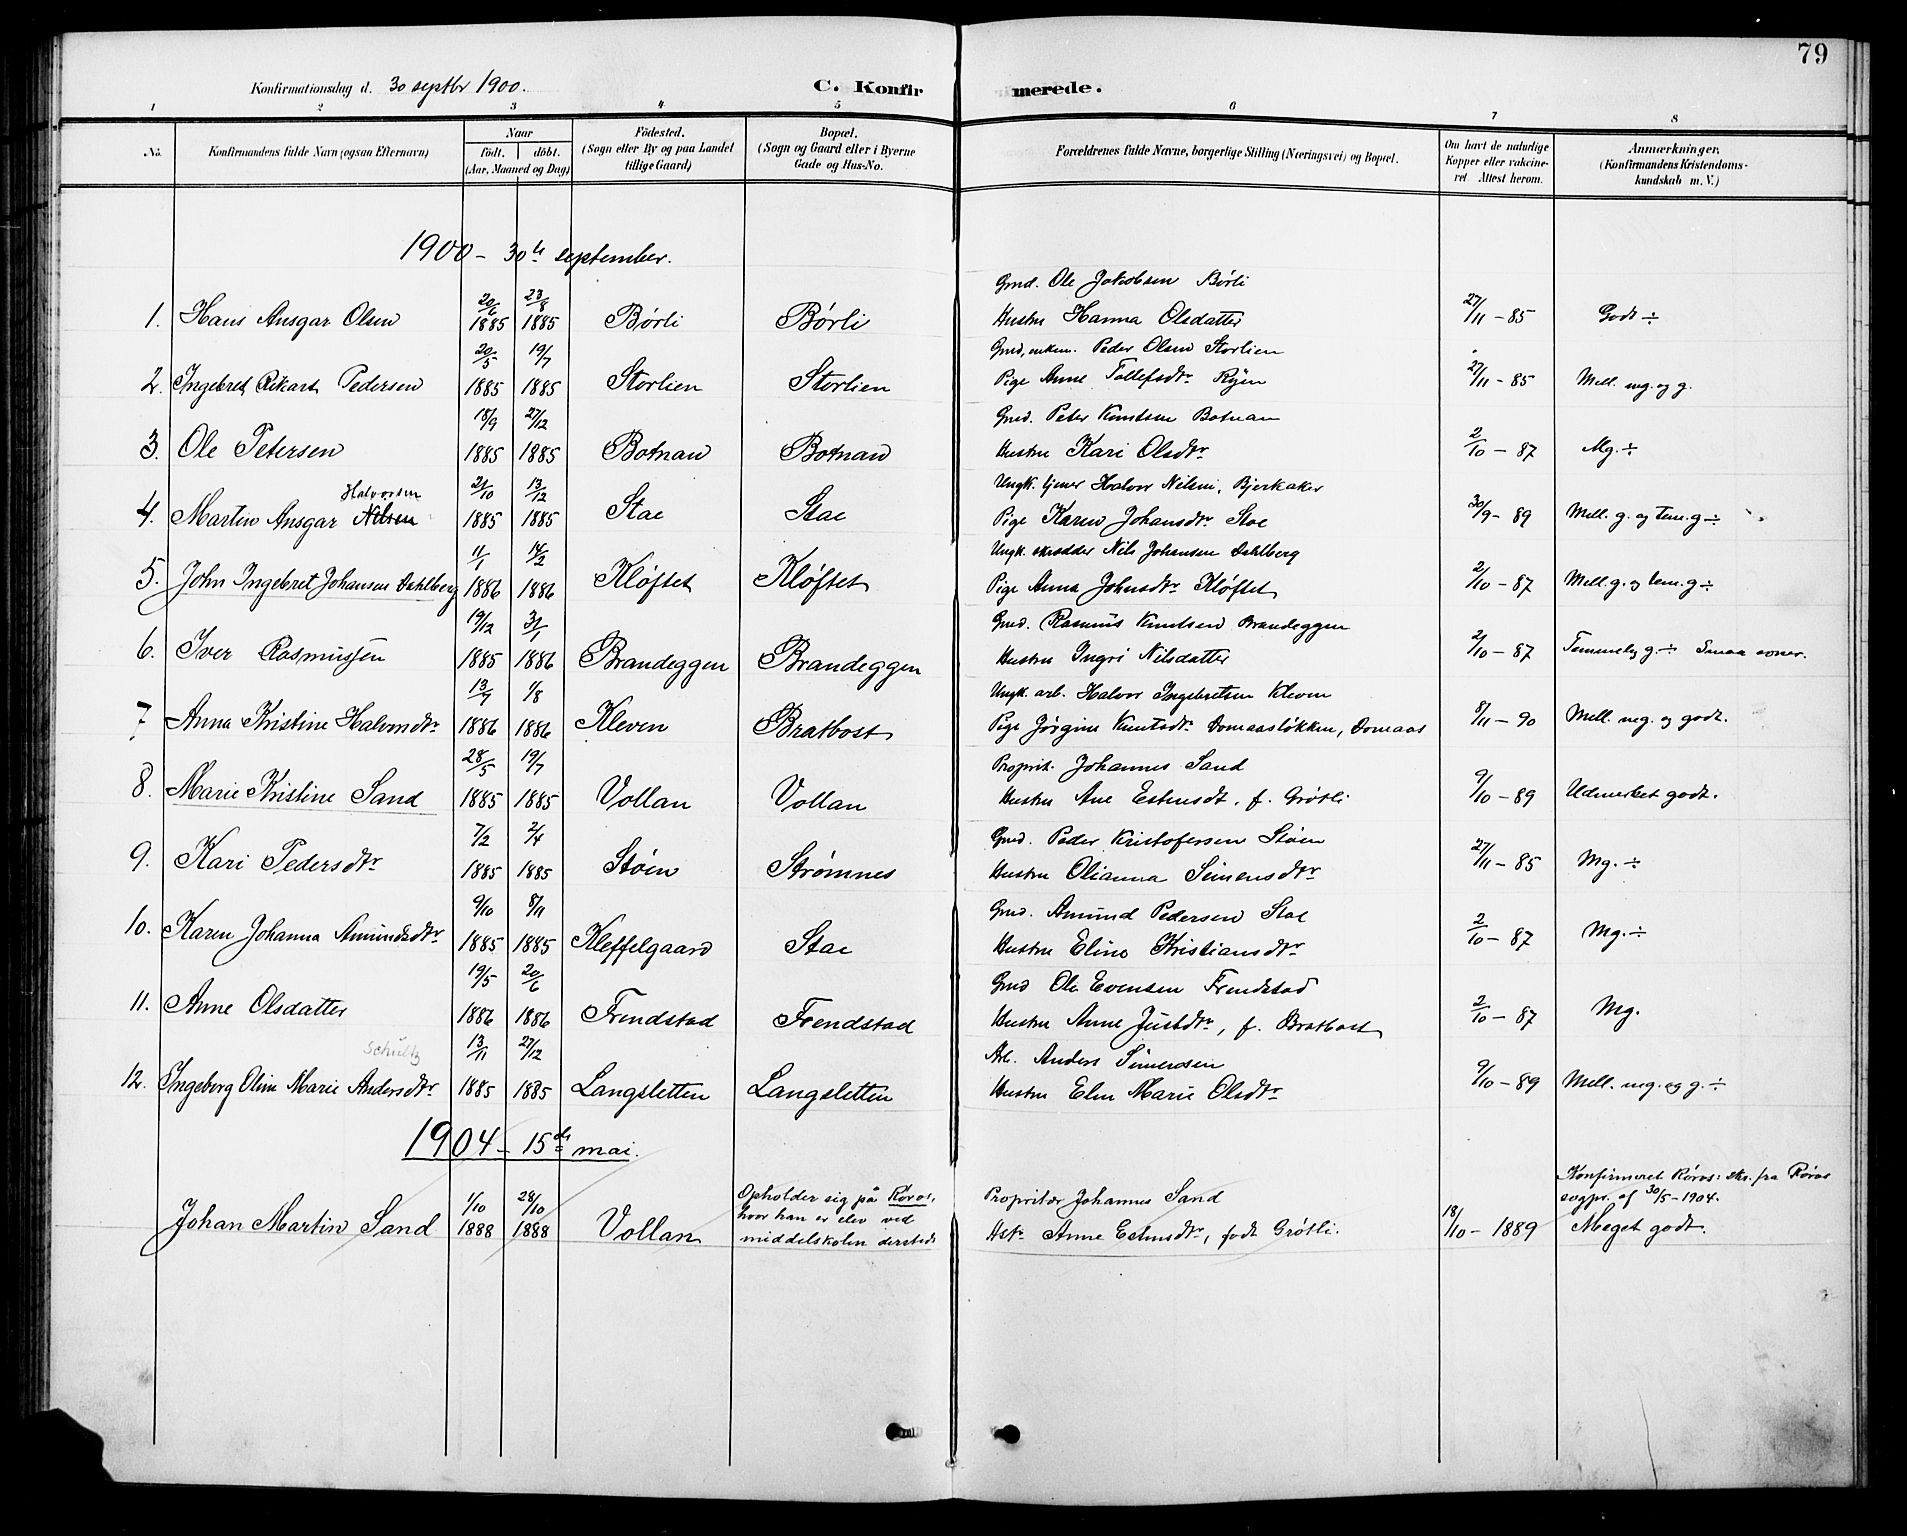 79
Konfirmationsdag d. 30 septbr 1900.
C. Konfirmerede.
1 2 3 4 5 6 7 8
No. Konfirmandens fulde Navn (ogsaa Efternavn) Naar födt. döbt. (Aar, Maaned og Dag) Födested. (Sogn eller By og paa Landet tillige Gaard) Bopæl. (Sogn og Gaard eller i Byerne Gade og Hus-No. Forældrenes fulde Navne, borgerlige Stilling (Næringsvei) og Bopæl. Om havt de naturlige Kopper eller vakcineret Attest herom. Anmærkninger, (Konfirmandens Kristendomskundskab m. V.)
1900 - 30te september.
Gmd. Ole Jakobsen Børli
1. Hans Ansgar Olsen 20/6 1885 23/8 1885 Børli Børli Hustru Hanna Olsdatter 27/11 - 85 Godt ÷
Gmd, enkem. Peder Olsen Storlien
2. Ingebret Rikart Pedersen 20/5 1885 19/7 1885 Storlien Storlien Pige Anne Tollefsdtr Ryen 27/11 - 85 Mell. mg. og g.
Gmd. Peter Knutsen Botnan
3. Ole Petersen 18/9 1885 27/12 1885 Botnan Botnan Hustru Kari Olsdtr 2/10 - 87 Mg. ÷
Halvorsen
Ungk. tjener Halvor Nilsen, Bjerkaker
4. Martin Ansgar Nilsen 21/10 1885 13/12 1885 Stae Stae Pige Karen Johansdtr Stae 30/9 - 89 Mell. g. og tem. g ÷
Ungk. skrædder Nils Johansen Dahlberg
5. John Ingebret Johansen Dahlberg 11/1 1886 14/2 1886 Kløftet Kløftet Pige Anna Johnsdtr Kløftet 2/10 - 87 Mell. g. og tem. g ÷
Gmd. Rasmus Knutsen Brandeggen
6. Iver Rasmussen 19/12 1885 31/1 1886 Brandeggen Brandeggen Hustru Ingri Nilsdatter 2/10 - 87 Temmelig g. ÷ Smaa evner.
Ungk. arb. Halvor Ingebretsen Kleven
7 Anna Kristine Halvorsdtr 13/7 1886 1/8 1886 Kleven Bratbost Pige Jørgine Knutsdtr Domaasløkken, Domaas 8/11 - 90 Mell. mg. og godt.
Proprit. Johannes Sand
8. Marie Kristine Sand 28/5 1885 19/7 1885 Vollan Vollan Hustru Ane Estensdt, f. Grøtli 9/10 - 89 Udmerket godt.
Gmd. Peder Kristofersen Støen
9. Kari Pedersdtr 7/2 1885 2/4 1885 Støen Strømnes Hustru Olianna Simensdtr 27/11 - 85 Mg. ÷
Gmd. Amund Pedersen Stae
10. Karen Johanna Amundsdtr 9/10 1885 8/11 1885 Kleffelgaard Stae Hustru Eline Kristiansdtr 2/10 - 87 Mg. ÷
Gmd Ole Evensen Frendstad
11. Anne Olsdatter 19/5 1886 20/6 1886 Frendstad Frendstad Hustru Anne Justdtr, f. Bratbost 2/10 - 87 Mg.
Schultz
Arb. Anders Simensen
12. Ingeborg Oline Marie Andersdtr 13/11 1885 27/12 1885 Langsletten Langsletten Hustru Elen Marie Olsdtr 9/10 - 89 Mell. mg. og g. ÷
1904 - 15de mai.
Johan Martin Sand 1/10 1888 28/10 1888 Vollan
Opholder sig på Røros,
hvor han er elev ved
middelskolen dersteds
Propritær Johannes Sand
Hstr Anne Estensdtr, født Grøtli.
18/10 - 1889
Konfirmeret Røros: skr. fra Røros
sogpr. af 30/5 - 1904.
Meget godt.